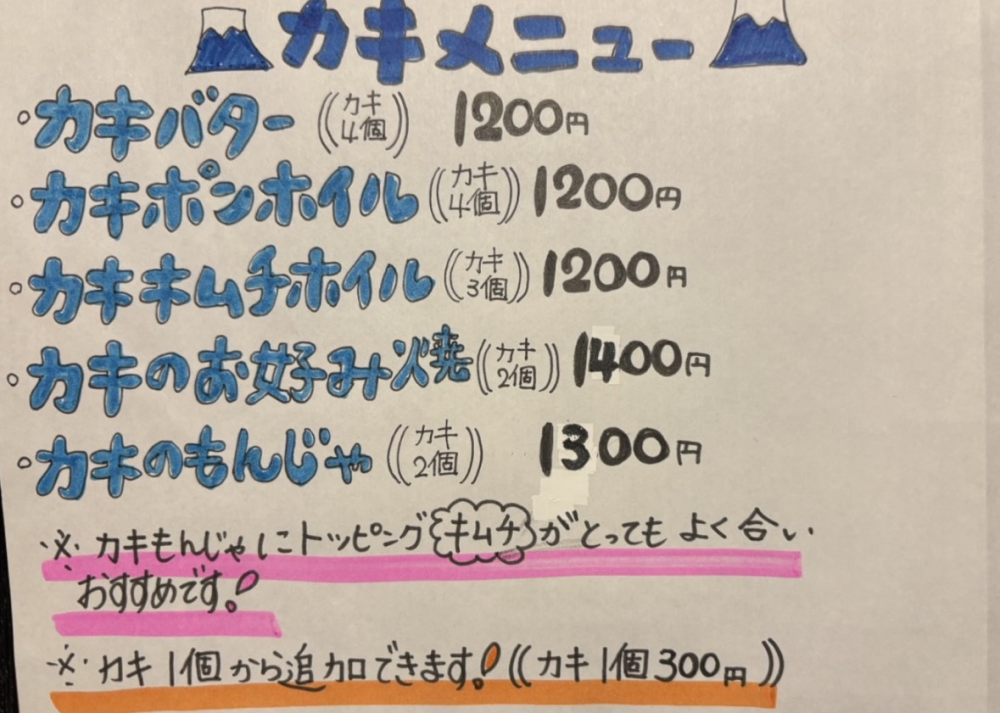 カキメニュー
◦カキバター((カキ4個)) 1200円
◦カキポンホイル((カキ4個)) 1200円
◦カキキムチホイル((カキ3個)) 1200円
◦カキのお好み焼((カキ2個)) 1400円
◦カキのもんじゃ((カキ2個)) 1300円
※カキもんじゃにトッピングキムチがとってもよく合い
おすすめです!
※カキ1個から追加できます!((カキ1個300円))